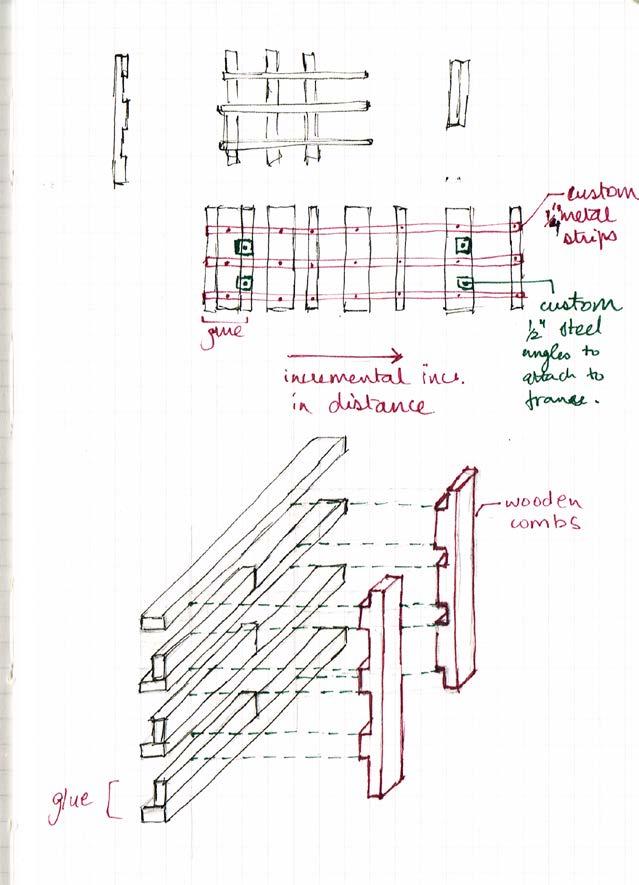 custom
1/4" metal
strips
glue
custom
1/2" steel
angles to
attach to
frame.
incremental incr.
in distance
wooden
combs
glue